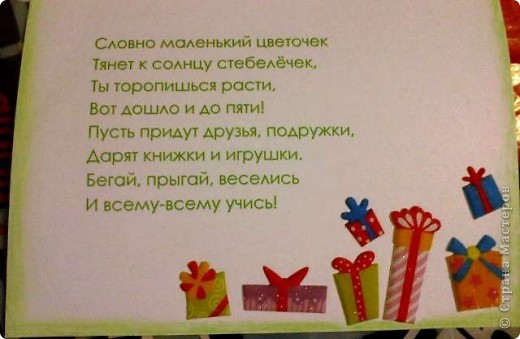 Словно маленький цветочек
Тянет к солнцу стебелёчек,
Ты торопишься расти,
Вот дошло и до пяти!
Пусть придут друзья, подружки,
Дарят книжки и игрушки.
Бегай, прыгай, веселись
И всему-всему учись!
© Страна Мастеров